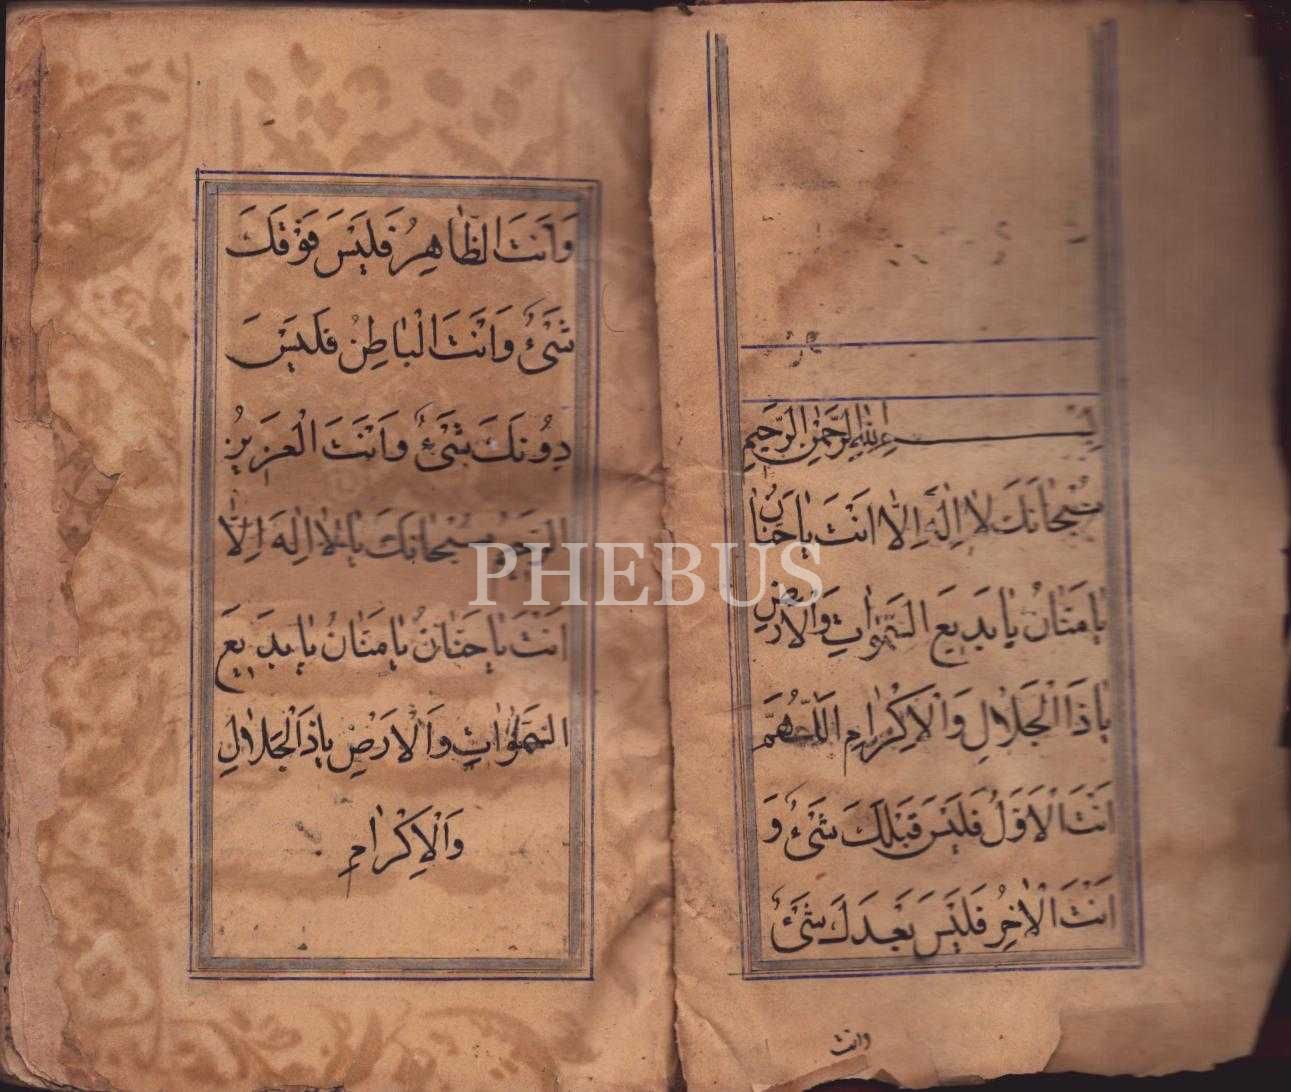 بِسْمِ اللهِ الرَّحْمٰنِ الرَّحِيمِ
سُبْحَانَكَ لَا اِلٰهَ اِلَّا اَنْتَ يَا حَنَّانُ
يَا مَنَّانُ يَا بَدِيعَ السَّمٰوَاتِ وَالْاَرْضِ
يَا ذَا الْجَلَالِ وَالْاِكْرَامِ اَللّٰهُمَّ
اَنْتَ الْاَوَّلُ فَلَيْسَ قَبْلَكَ شَيْءٌ وَ
اَنْتَ الْاٰخِرُ فَلَيْسَ بَعْدَكَ شَيْءٌ
وانت
وَاَنْتَ الظَّاهِرُ فَلَيْسَ فَوْقَكَ
شَيْءٌ وَاَنْتَ الْبَاطِنُ فَلَيْسَ
دُونَكَ شَيْءٌ وَاَنْتَ الْعَزِيزُ
سُبْحَانَكَ يَا لَا اِلٰهَ اِلَّا
اَنْتَ يَا حَنَّانُ يَا مَنَّانُ يَا بَدِيعَ
السَّمٰوَاتِ وَالْاَرْضِ يَا ذَا الْجَلَالِ
وَالْاِكْرَامِ
PHEBUS